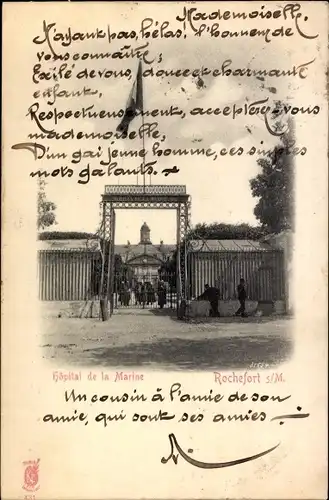 Mademoiselle.
N'ayant pas, hélas! l'honneur de
vous connaître;
Exilé de vous, douce et charmante
enfant,
Respectueusement, acceptez-vous
mademoiselle,
D'un gai jeune homme, ces simples
mots galants.
Hôpital de la Marine Rochefort s/M.
Un cousin à l'amie de son
amie, qui sont ses amies.